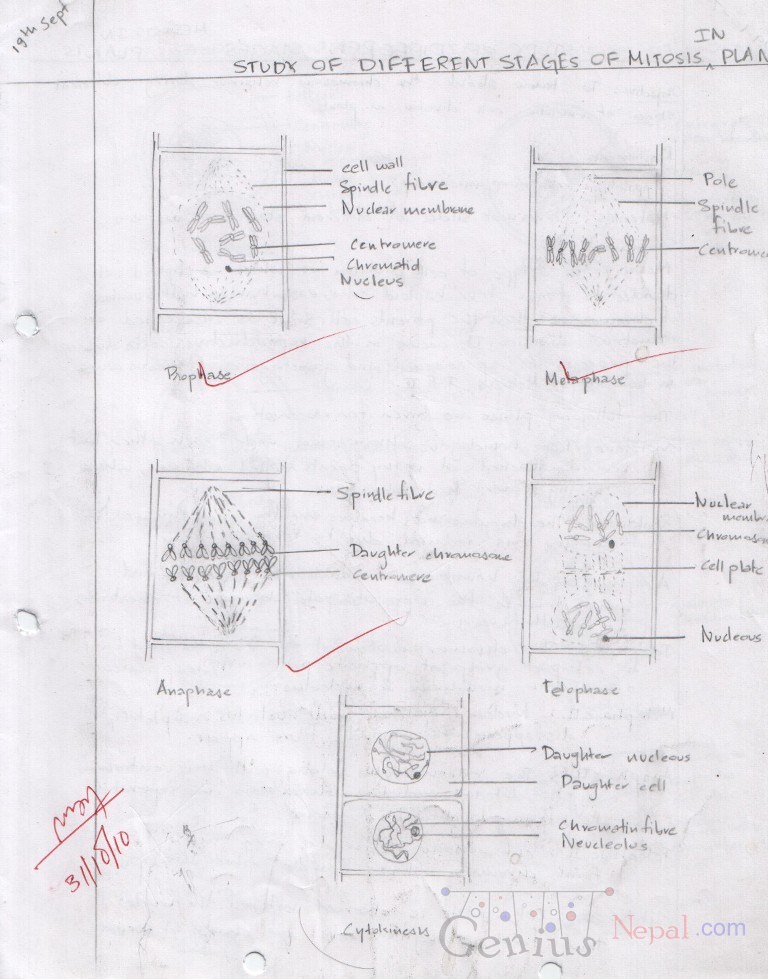 19th Sept
IN
STUDY OF DIFFERENT STAGES OF MITOSIS, PLAN
cell wall
Spindle fibre
Nuclear membrane
Centromere
Chromatid
Nucleus
Prophase
Pole
Spindle
fibre
Centrome
Metaphase
Spindle fibre
Daughter chromosome
Centromere
Anaphase
Nuclear
membra
Chromoso
Cell plate
Nucleous
Telophase
Daughter nucleous
Daughter cell
Chromatin fibre
Neucleolus
Cytokinesis
31/10/10
Genius Nepal.com